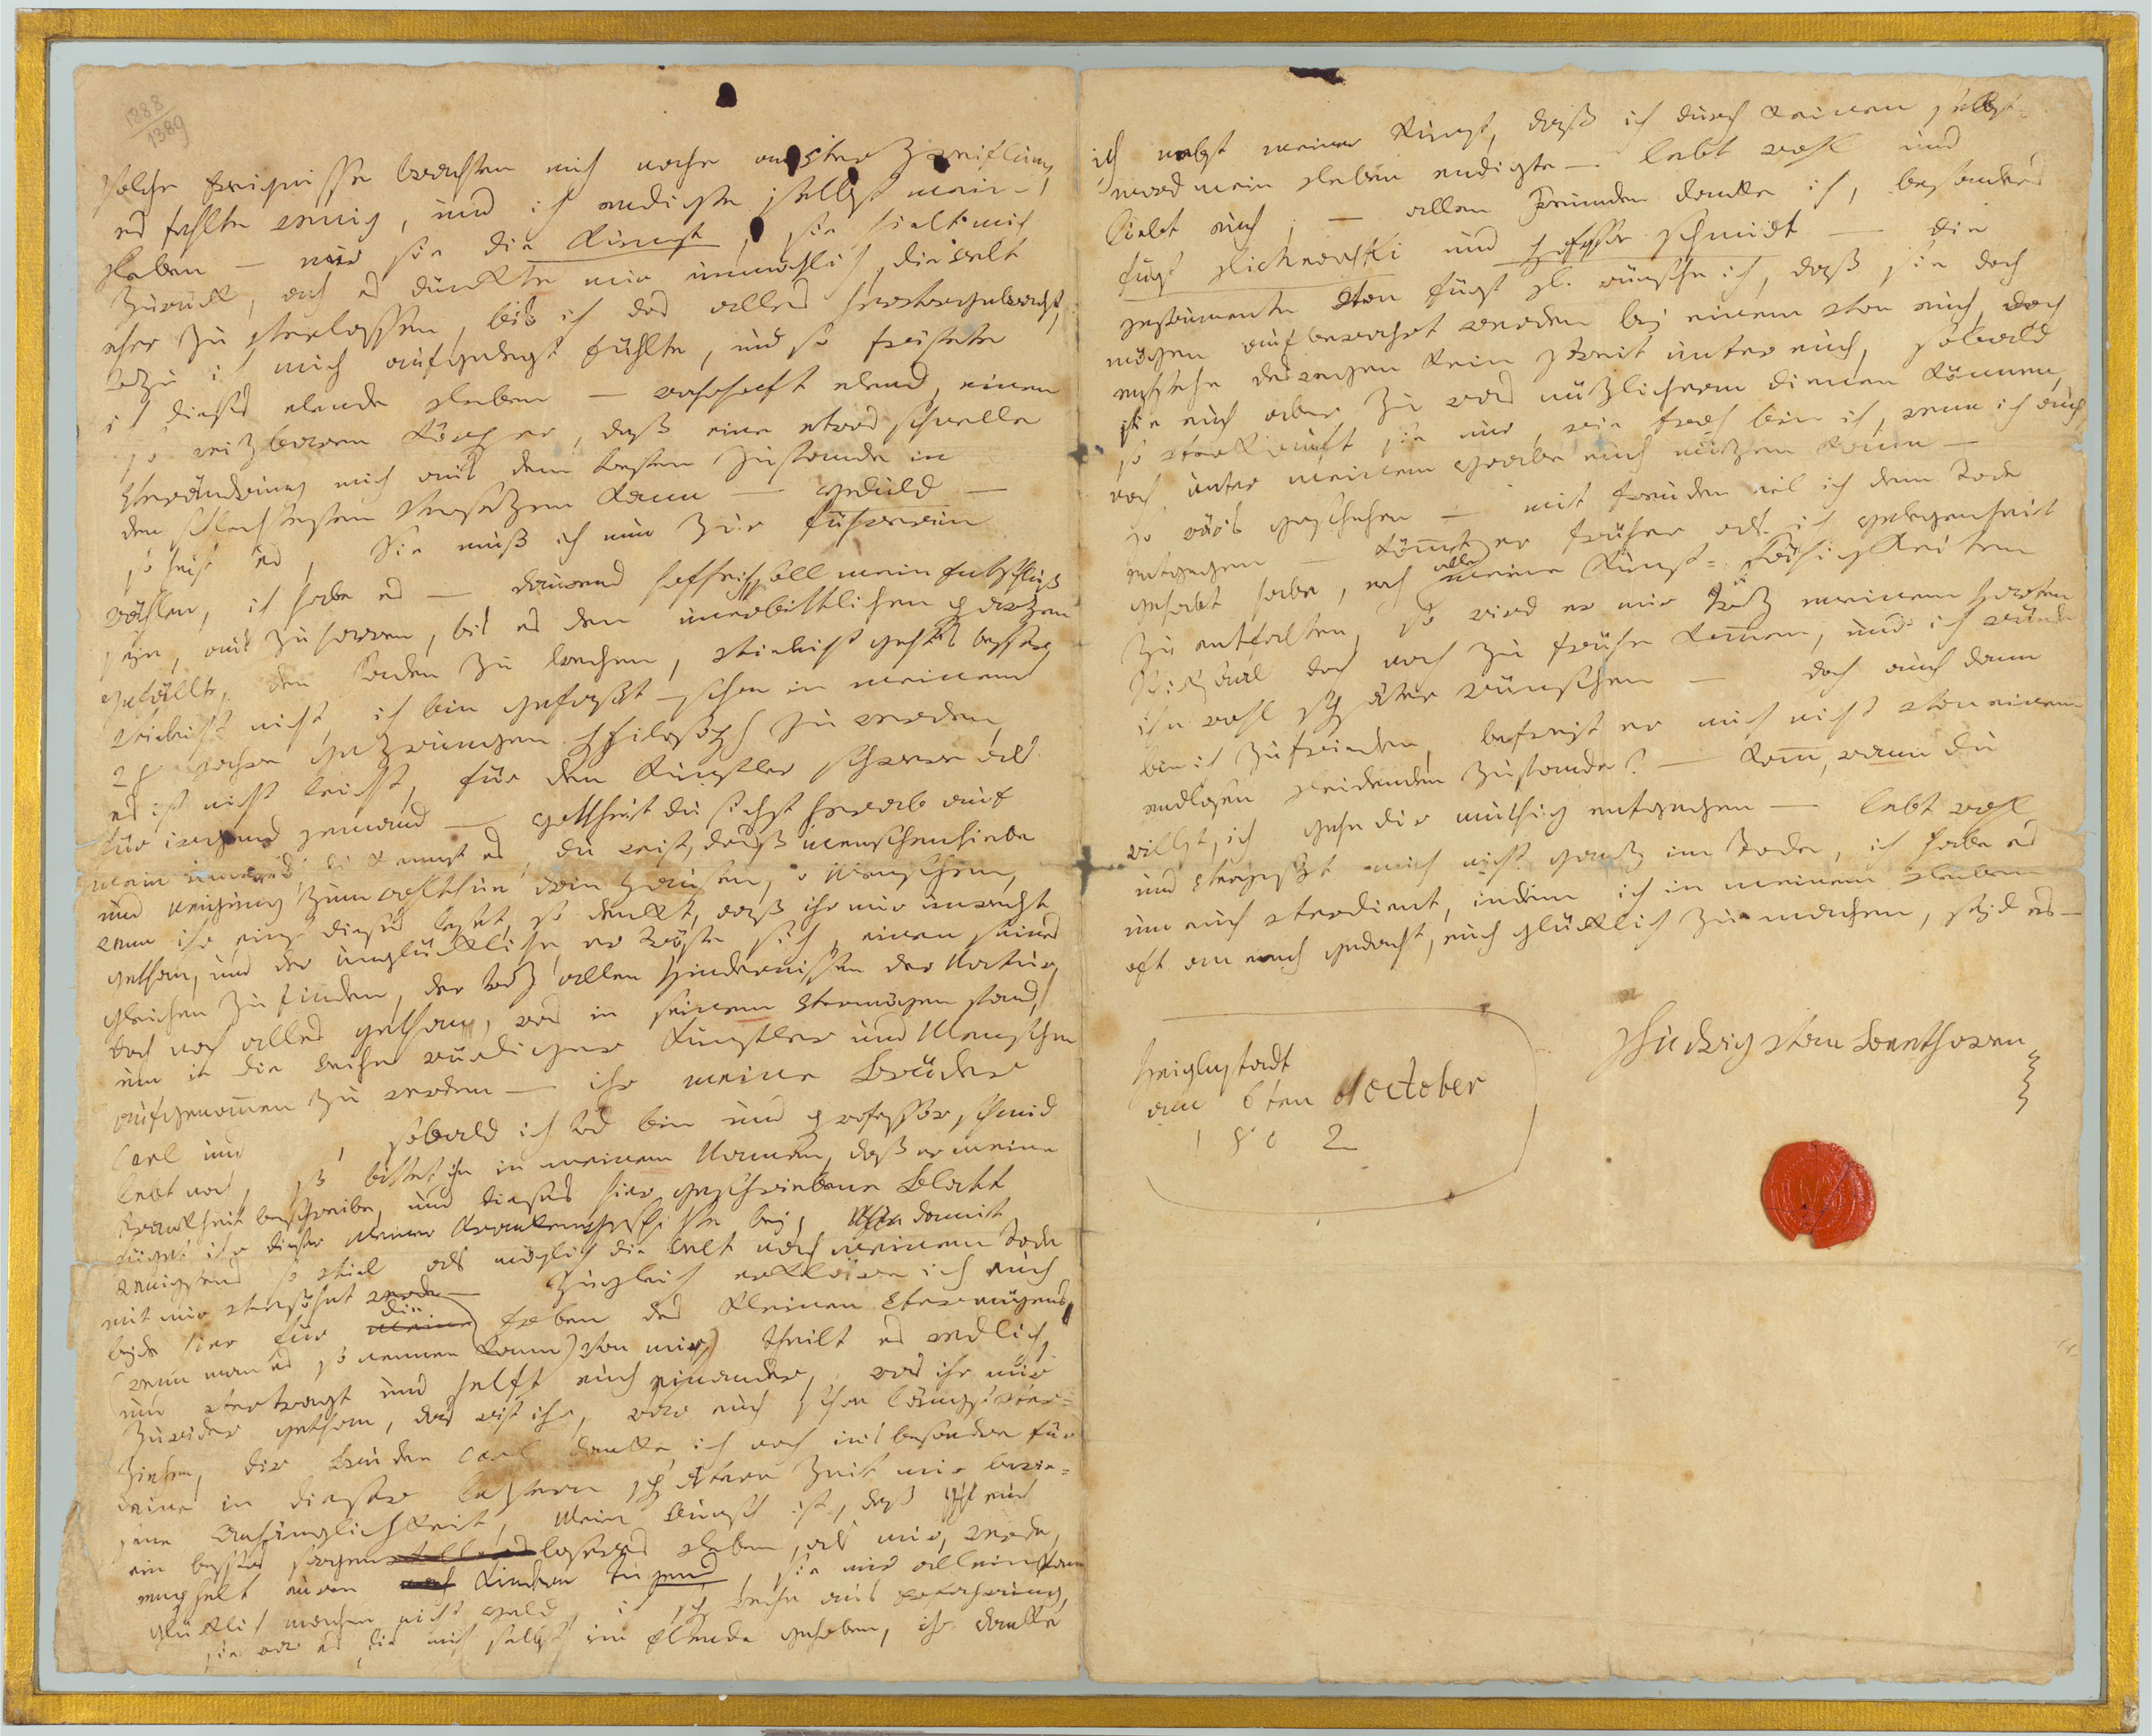 1388
1389
solche Ereignisse brachten mich nahe an Verzweiflung,
es fehlte wenig, und ich endigte selbst mein
Leben – nur sie die Kunst, sie hielt mich
zurück, ach es dünkte mir unmöglich, die welt
eher zu verlassen, bis ich das alles hervorgebracht,
wozu ich mich aufgelegt fühlte, und so fristete
ich dieses elende Leben – wahrhaft elend, einen
so reizbaren Körper, daß eine etwas schnelle
Verändrung mich aus dem Besten Zustande in
den schlechtesten versezen kann – Geduld –
so heist es, Sie muß ich nun zur führerin
wählen, ich habe es – daurend hoffe ich, soll mein Entschluß
seyn, aus zu harren, bis es den unerbittlichen Parzen
gefällt, den Faden zu brechen, vieleicht geht's besser,
vieleicht nicht, ich bin gefaßt – schon in meinem
28 Jahre gezwungen Philosoph zu werden,
es ist nicht leicht, für den Künstler schwerer als
für irgend jemand – gottheit du siehst herab auf
mein inneres, du kennst es, du weist, daß menschenliebe
und neigung zum wohlthun drin Hausen, o Menschen,
wenn ihr einst dieses leset, so denkt, daß ihr mir unrecht
gethan, und der unglückliche, er tröste sich, einen seines
gleichen zu finden, der troz allen Hindernissen der Natur,
doch noch alles gethan, was in seinem Vermögen stand,
um in die Reihe würdiger Künstler und Menschen
aufgenommen zu werden – ihr meine Brüder
Carl und          , sobald ich Tod bin und professor schmid
lebt noch, so bittet ihn in meinem Namen, daß er meine
Krankheit beschreibe, und dieses hier geschriebene Blatt
füget ihr dieser meiner Krankengeschichte bei, damit
wenigstens so viel als möglich die welt nach meinem Tode
mit mir versöhnt werde – Zugleich erkläre ich euch
beyde hier für meine die Erben des kleinen Vermögens,
(wenn man es so nennen kann) von mir, theilt es redlich,
und vertragt und helft euch einander, was ihr mir
zuwider gethan, das wist ihr, war euch schon längst ver=
ziehen, dir Bruder Carl danke ich noch in's besondre für
deine in dieser leztern spätern Zeit mir bewie=
sene Anhänglichkeit, Mein wunsch ist, daß euch
ein besseres sorgenloseres Leben, als mir, werde,
empfelt euren Kindern Tugend, sie nur allein kann
glücklich machen, nicht Geld, ich spreche aus Erfahrung,
sie war es, die mich selbst im Elende gehoben, ihr danke
ich nebst meiner Kunst, daß ich durch keinen selbst=
mord mein Leben endigte – lebt wohl und
liebt euch, – allen Freunden danke ich, besonders
fürst Lichnowski und Professor schmidt – die
Instrumente von fürst L. wünsche ich, daß sie doch
mögen aufbewahrt werden bey einem von euch, doch
entstehe deswegen kein streit unter euch, sobald
sie euch aber zu was nüzlicherm dienen können,
so verkauft sie nur, wie froh bin ich, wenn ich auch
noch unter meinem Grabe euch nüzen kann –
so wär's geschehen – mit freuden eil ich dem Tode
entgegen – kömmt er früher als ich Gelegenheit
gehabt habe, noch alle meine Kunst=Fähigkeiten
zu entfalten, so wird er mir troz meinem Harten
Schicksaal doch noch zu frühe kommen, und ich würde
ihn wohl später wünschen – doch auch dann
bin ich zufrieden, befreyt er mich nicht von einem
endlosen Leidenden Zustande? – komm, wann du
willst, ich gehe dir muthig entgegen – lebt wohl
und Vergeßt mich nicht ganz im Tode, ich habe es
um euch verdient, indem ich in meinem Leben
oft an euch gedacht, euch glücklich zu machen, seyd es –
Ludwig van Beethoven
Heiglnstadt
am 6ten October
1802